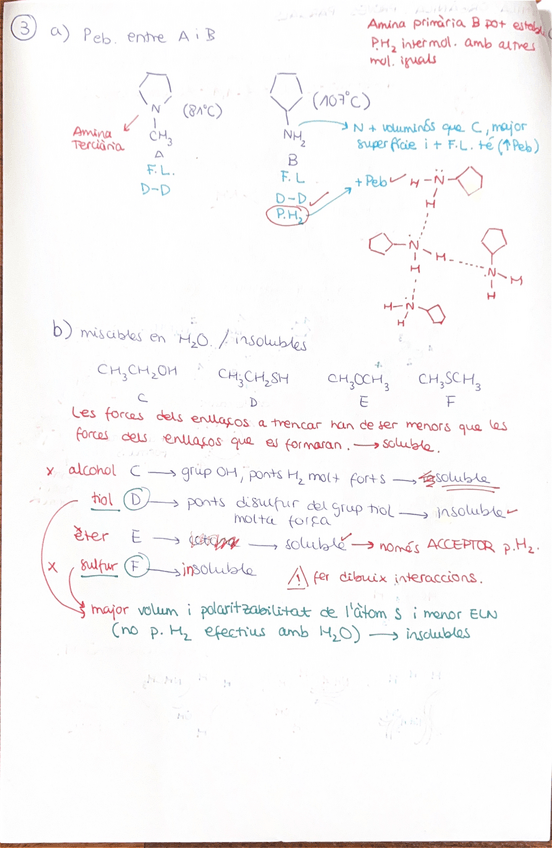 ③ a) Peb. entre A i B
Amina primària B pot establ.
P.H₂ intermol. amb altres
mol. iguals
N
(81ºC)
(107ºC)
CH₃
NH₂
Amina
Terciària
A
B
F.L.
D-D
F.L
D-D
P.H₂
→ N + voluminós que C, major
superfície i + F.L. té (↑Peb)
+ Peb
H-N
H
N
H
H
N
H
H
H-N
H
b) miscibles en H₂O. / insolubles
CH₃CH₂OH CH₃CH₂SH CH₃OCH₃ CH₃SCH₃
C D E F
Les forces dels enllaços a trencar han de ser menors que les
forces dels enllaços que es formaran. → soluble.
x alcohol C → grup OH, ponts H₂ molt forts → soluble
tiol D → ponts disulfur del grup tiol → insoluble
molta força
èter E → → soluble → només ACCEPTOR p.H₂.
x sulfur F → insoluble ⚠ fer dibuix interaccions.
major volum i polaritzabilitat de l'àtom S i menor ELN
(no p. H₂ efectius amb H₂O) → insolubles